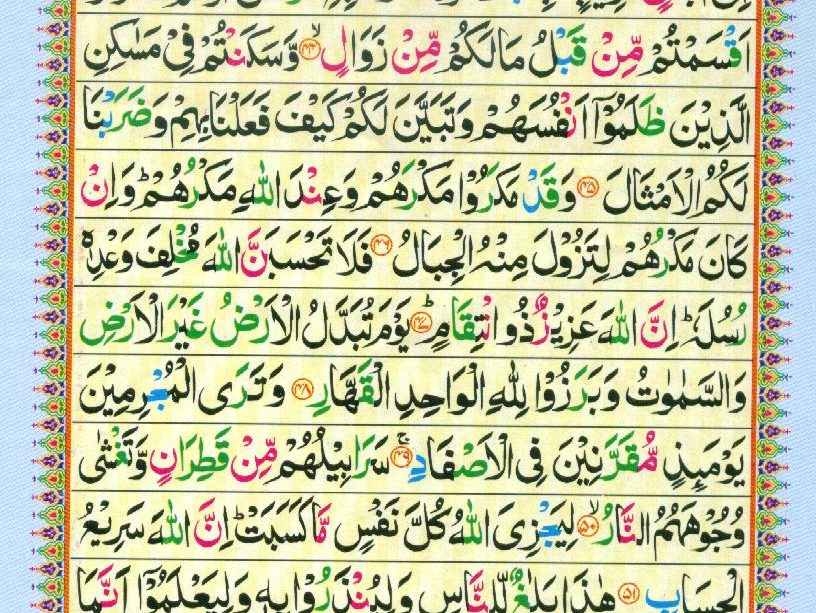 اَقْسَمْتُمْ مِّنْ قَبْلُ مَا لَكُمْ مِّنْ زَوَالٍ ۙ۝۴۴ وَّسَكَنْتُمْ فِیْ مَسٰكِنِ
الَّذِیْنَ ظَلَمُوْۤا اَنْفُسَهُمْ وَتَبَیَّنَ لَكُمْ كَیْفَ فَعَلْنَا بِهِمْ وَضَرَبْنَا
لَكُمُ الْاَمْثَالَ ۝۴۵ وَقَدْ مَكَرُوْا مَكْرَهُمْ وَعِنْدَ اللّٰهِ مَكْرُهُمْ ؕ وَاِنْ
كَانَ مَكْرُهُمْ لِتَزُوْلَ مِنْهُ الْجِبَالُ ۝۴۶ فَلَا تَحْسَبَنَّ اللّٰهَ مُخْلِفَ وَعْدِهٖ
رُسُلَهٗ ؕ اِنَّ اللّٰهَ عَزِیْزٌ ذُو انْتِقَامٍ ؕ۝۴۷ یَوْمَ تُبَدَّلُ الْاَرْضُ غَیْرَ الْاَرْضِ
وَالسَّمٰوٰتُ وَبَرَزُوْا لِلّٰهِ الْوَاحِدِ الْقَهَّارِ ۝۴۸ وَتَرَی الْمُجْرِمِیْنَ
یَوْمَىِٕذٍ مُّقَرَّنِیْنَ فِی الْاَصْفَادِ ۚ۝۴۹ سَرَابِیْلُهُمْ مِّنْ قَطِرَانٍ وَّتَغْشٰی
وُجُوْهَهُمُ النَّارُ ۙ۝۵۰ لِیَجْزِیَ اللّٰهُ كُلَّ نَفْسٍ مَّا كَسَبَتْ ؕ اِنَّ اللّٰهَ سَرِیْعُ
الْحِسَابِ ۝۵۱ هٰذَا بَلٰغٌ لِّلنَّاسِ وَلِیُنْذَرُوْا بِهٖ وَلِیَعْلَمُوْۤا اَنَّمَا